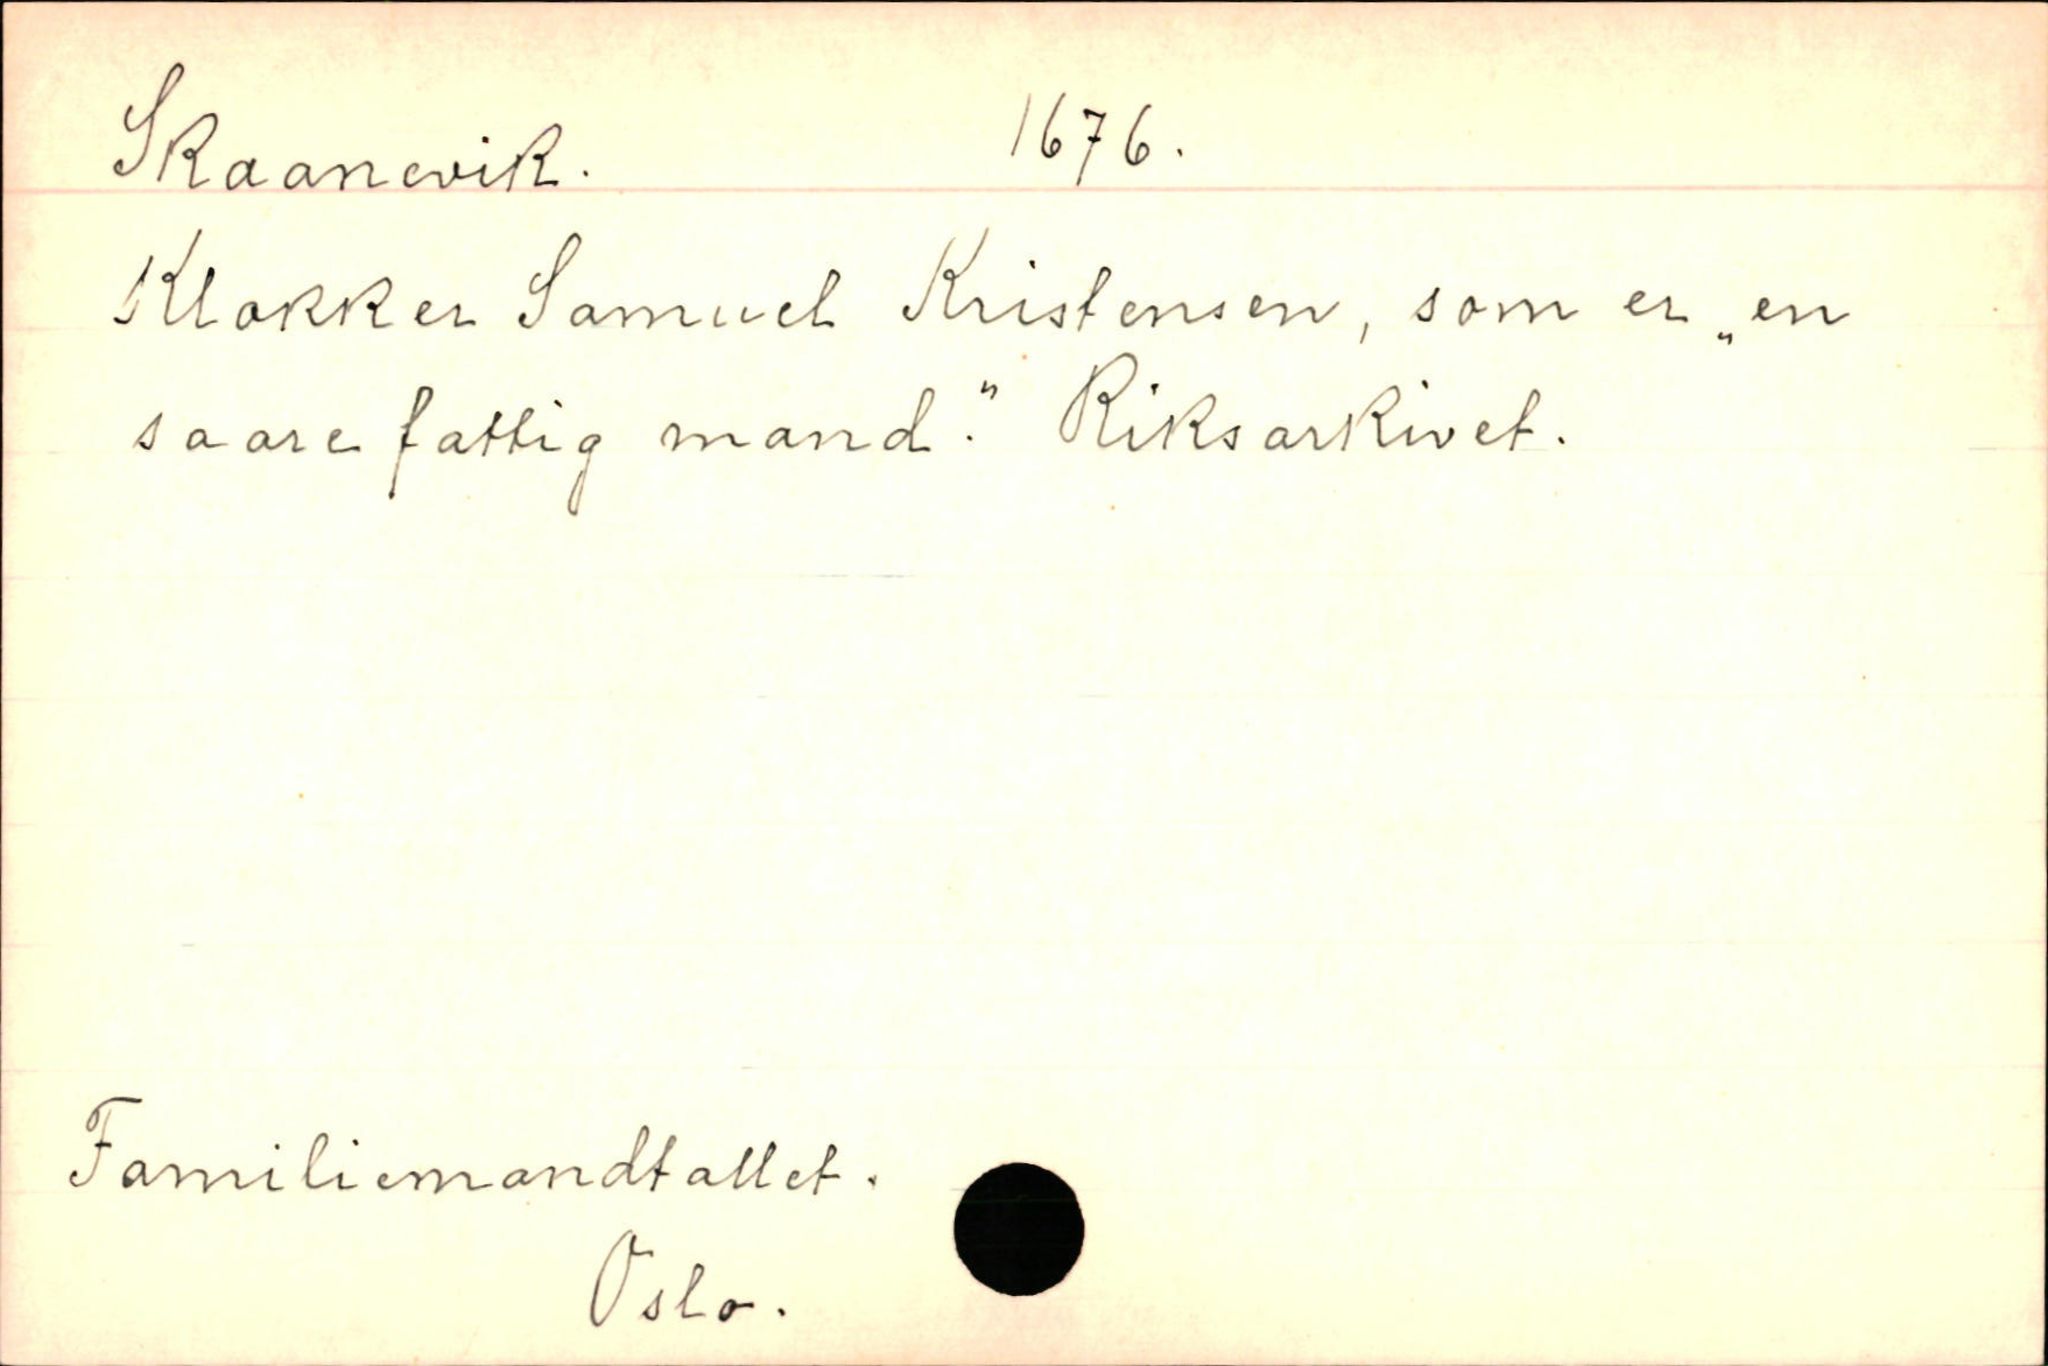 Skaanevik. 1676.
Klokker Samuel Kristensen, som er „en
saare fattig mand." Riksarkivet.
Familiemandtallet.
Oslo.